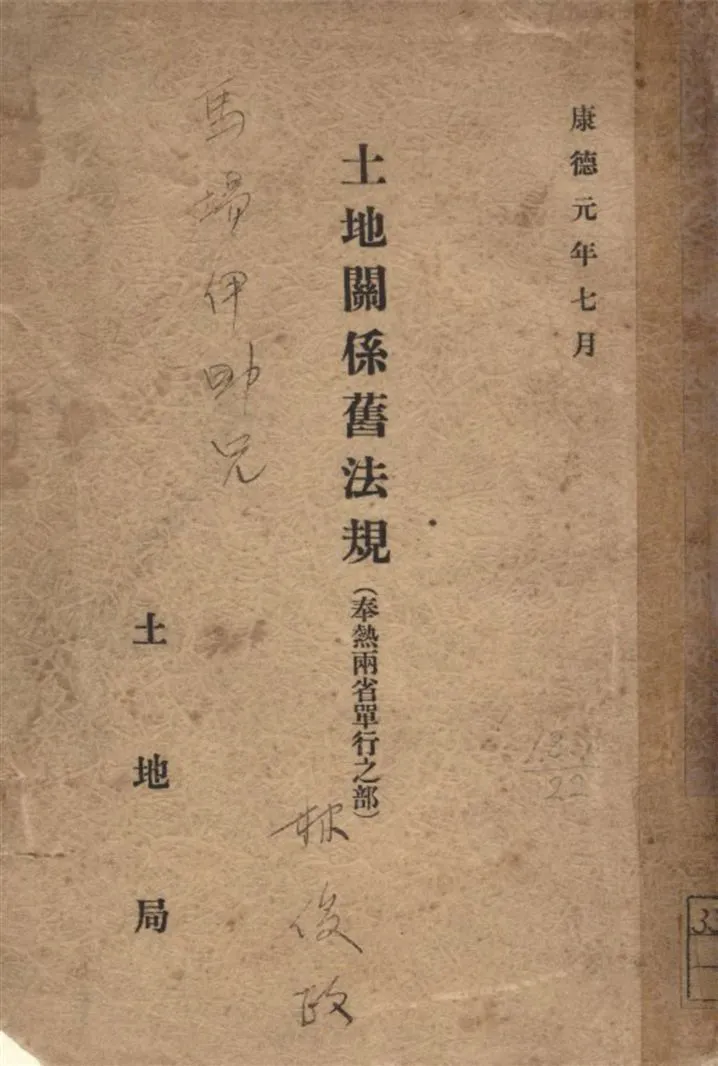 康德元年七月
土地關係舊法規(奉熱兩省單行之部)
馬場伊帥兄
林俊政
土地局
22
33